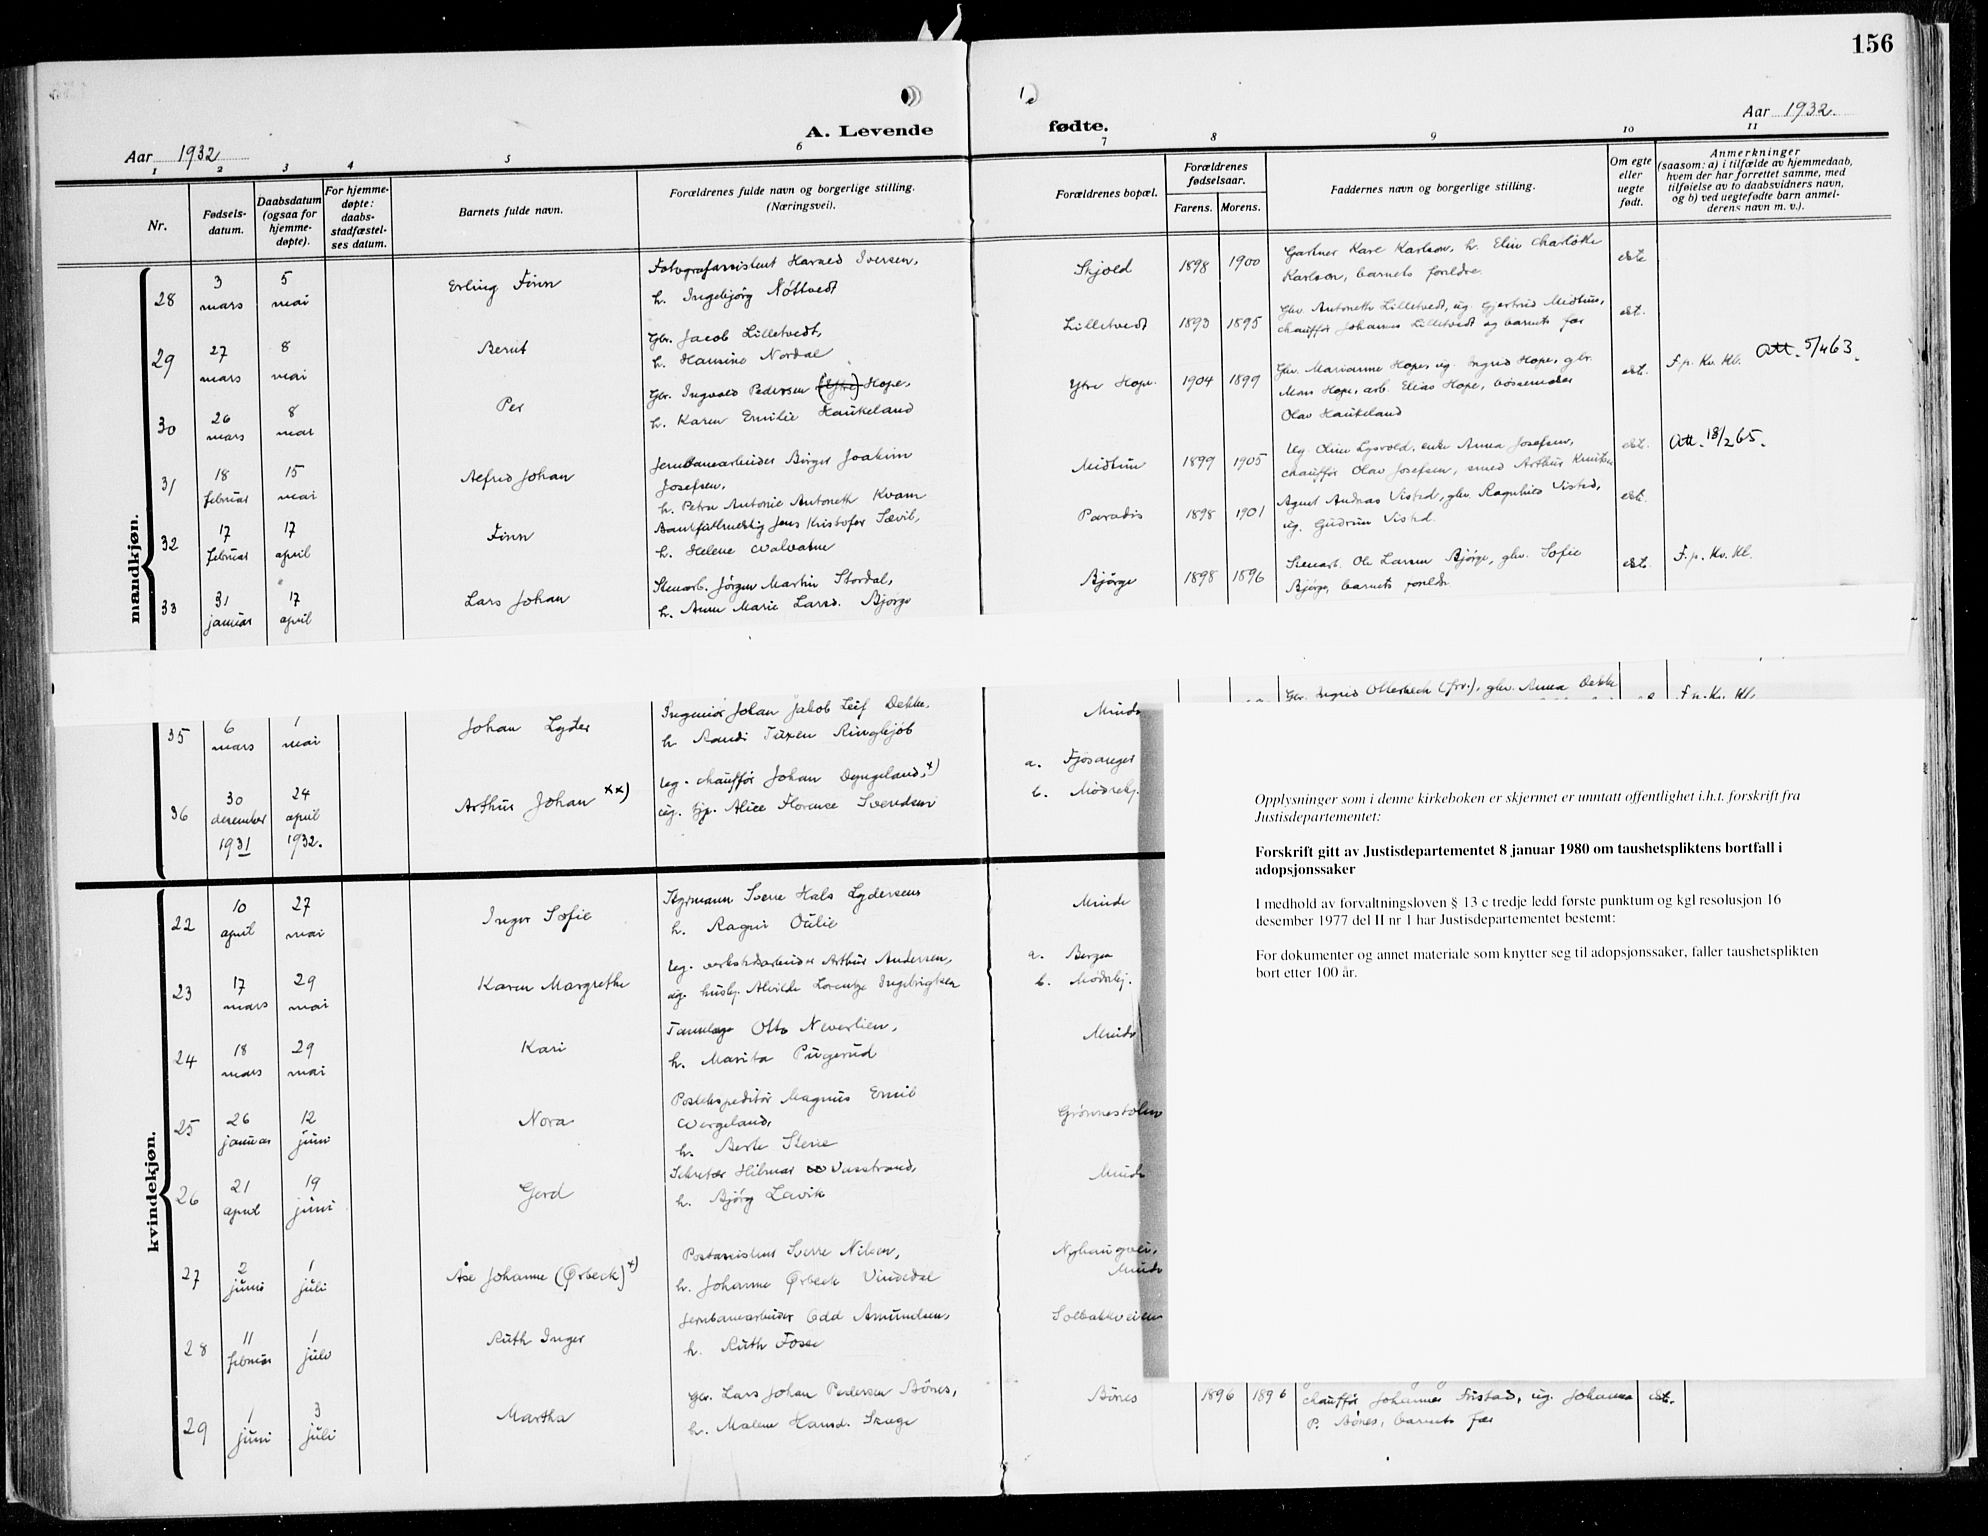 156
A. Levende fødte.
Aar 1932
Aar 1932.
1 2 3 4 5 6 7 8 9 10 11
Nr.
Fødsels-
datum.
Daabsdatum
(ogsaa for
hjemme-
døpte).
For hjemme-
døpte:
daabs-
stadfæstel-
ses datum.
Barnets fulde navn.
Forældrenes fulde navn og borgerlige stilling.
(Næringsvei).
Forældrenes bopæl.
Forældrenes
fødselsaar.
Farens. Morens.
Faddernes navn og borgerlige stilling.
Om egte
eller
uegte
født.
Anmerkninger
(saasom: a) i tilfælde av hjemmedaab,
hvem der har forrettet samme, med
tilføielse av to daabsvidners navn,
og b) ved uegtefødte barn anmel-
derens navn m. v.).
mandkjøn.
28
3 mars
5 mai
Erling Finn
Fotografassistent Harald Iversen,
h. Ingebjørg Nöttvedt
Skjold
1898 1900
Gartner Karl Karlson, h. Elin Charlotte
Karlson, barnets foreldre.
ekte
29
27 mars
8 mai
Berit
Gbr. Jacob Lilletvedt,
h. Hansine Nordal
Lilletvedt
1893 1895
Gbr. Antoneth Lilletvedt, ug. Gjertrud Midttun,
chaufför Johannes Lilletvedt og barnets far
ekt.
30
26 mars
8 mai
Per
Gbr. Ingvald Pedersen (Ytre) Hope,
h. Karen Emilie Haukeland
Ytre Hope.
1904 1899
Glv. Marianne Hope, ug. Ingrid Hope, gbr.
Mons Hope, arb. Elias Hope, bøssemaker
Olav Haukeland
ekt.
F.p. Kv. Kl. Att. 5/4 63.
31
18 februar
15 mai
Alfred Johan
Jernbanearbeider Birger Joakim
Josefsen,
h. Petra Antonie Antoneth Kvam
Midttun
1899 1905
Ug. Oline Lysvold, enke Anna Josefsen,
chaufför Olav Josefsen, smed Arthur Knutsen
ekt.
Att. 18/2 65.
32
17 februar
17 april
Finn
Bankfullmektig Jens Kristofer Sævil,
h. Helene Walvatne
Paradis
1898 1901
Agent Andreas Visted, glv. Ragnhild Visted,
ug. Gudrun Visted.
ekt.
33
31 januar
17 april
Lars Johan
Stenarb. Jørgen Martin Stordal,
h. Anna Marie Larsd. Bjørge
Bjørge
1898 1896
Stenarb. Ole Larsen Bjørge, glv. Sofie
Bjørge, barnets foreldre.
ekt.
F.p. Kv. Kl.
35
6 mars
1 mai
Johan Lyder
Ingeniör Johan Jakob Leif Dekke,
h. Randi Tuxen Ringhjöb
Minde
Glv. Ingrid Otterbech (frv.), glv. Anna Dekke
F.p. Kv. Kl.
36
30 desember 1931
24 april 1932.
Arthur Johan xx)
Ug. chaufför Johan Dyngeland, x)
ug. tjp. Alice Florence Svendsen
a. Fjøsanger
b. Mødrehj.
kvindekjøn.
22
10 april
27 mai
Inger Sofie
Styrmann Sverre Hals Lydersens
h. Ragni Oulie
Minde
23
17 mars
29 mai
Karen Margrethe
Ug. verkstedarbeider Arthur Andersen,
ug. hushj. Alvilde Lorentze Ingebrigtsen
a. Bergen
b. Mødrehj.
24
18 mars
29 mai
Kari
Tannlæge Otto Neverlien,
h. Marita Pugerud
Minde
25
26 januar
12 juni
Nora
Postekspeditör Magnus Emil
Wergeland,
h. Berte Stene
Grønnestølen
26
21 april
19 juni
Gerd
Sekretær Hilmar Vusstrand,
h. Bjørg Lavik
Minde
27
2 juni
1 juli
Åse Johanne (Ørbeck) x)
Postassistent Sverre Nilsen,
h. Johanne Ørbeck Vindedal
Nyhaugvei,
Minde
28
11 februar
1 juli
Ruth Inger
Jernbanearbeider Odd Amundsen,
h. Ruth Fosse
Solbakkveien
29
1 juni
3 juli
Martha
Gbr. Lars Johan Pedersen Bönes,
h. Malene Hansd. Skage
Bönes
1896 1896
chaufför Johannes Fristad, ug. Johanna
P. Bönes, barnets far
ekt.
Opplysninger som i denne kirkeboken er skjermet er unntatt offentlighet i.h.t. forskrift fra
Justisdepartementet:
Forskrift gitt av Justisdepartementet 8 januar 1980 om taushetspliktens bortfall i
adopsjonssaker
I medhold av forvaltningsloven § 13 c tredje ledd første punktum og kgl resolusjon 16
desember 1977 del II nr 1 har Justisdepartementet bestemt:
For dokumenter og annet materiale som knytter seg til adopsjonssaker, faller taushetsplikten
bort etter 100 år.